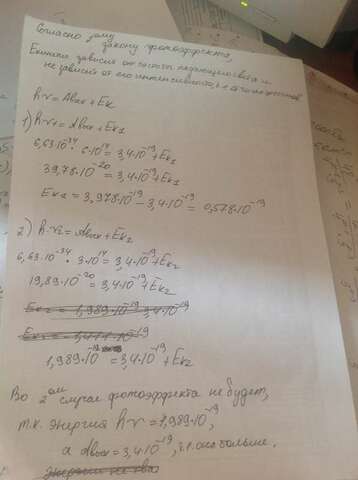 Согласно 2ому
закону фотоэффекта,
Екинет. зависит от частоты падающего света и
не зависит от его интенсивности,
hν = Aвых + Eк
1) hν₁ = Aвых + Eк₁
6,63·10⁻³⁴ · 6·10¹⁴ = 3,4·10⁻¹⁹ + Eк₁
39,78·10⁻²⁰ = 3,4·10⁻¹⁹ + Eк₁
Eк₁ = 3,978·10⁻¹⁹ - 3,4·10⁻¹⁹ = 0,578·10⁻¹⁹
2) h·ν₂ = Aвых + Eк₂
6,63·10⁻³⁴ · 3·10¹⁴ = 3,4·10⁻¹⁹ + Eк₂
19,89·10⁻²⁰ = 3,4·10⁻¹⁹ + Eк₂
Eк₂ = 1,989·10⁻¹⁹ 3,4·10⁻¹⁹
Eк₂ = 1,411·10⁻¹⁹
1,989·10⁻¹⁹ = 3,4·10⁻¹⁹ + Eк₂
Во 2ом случае фотоэффекта не будет,
т.к. энергия h·ν = 1,989·10⁻¹⁹,
а Aвых = 3,4·10⁻¹⁹, т.е. она больше.